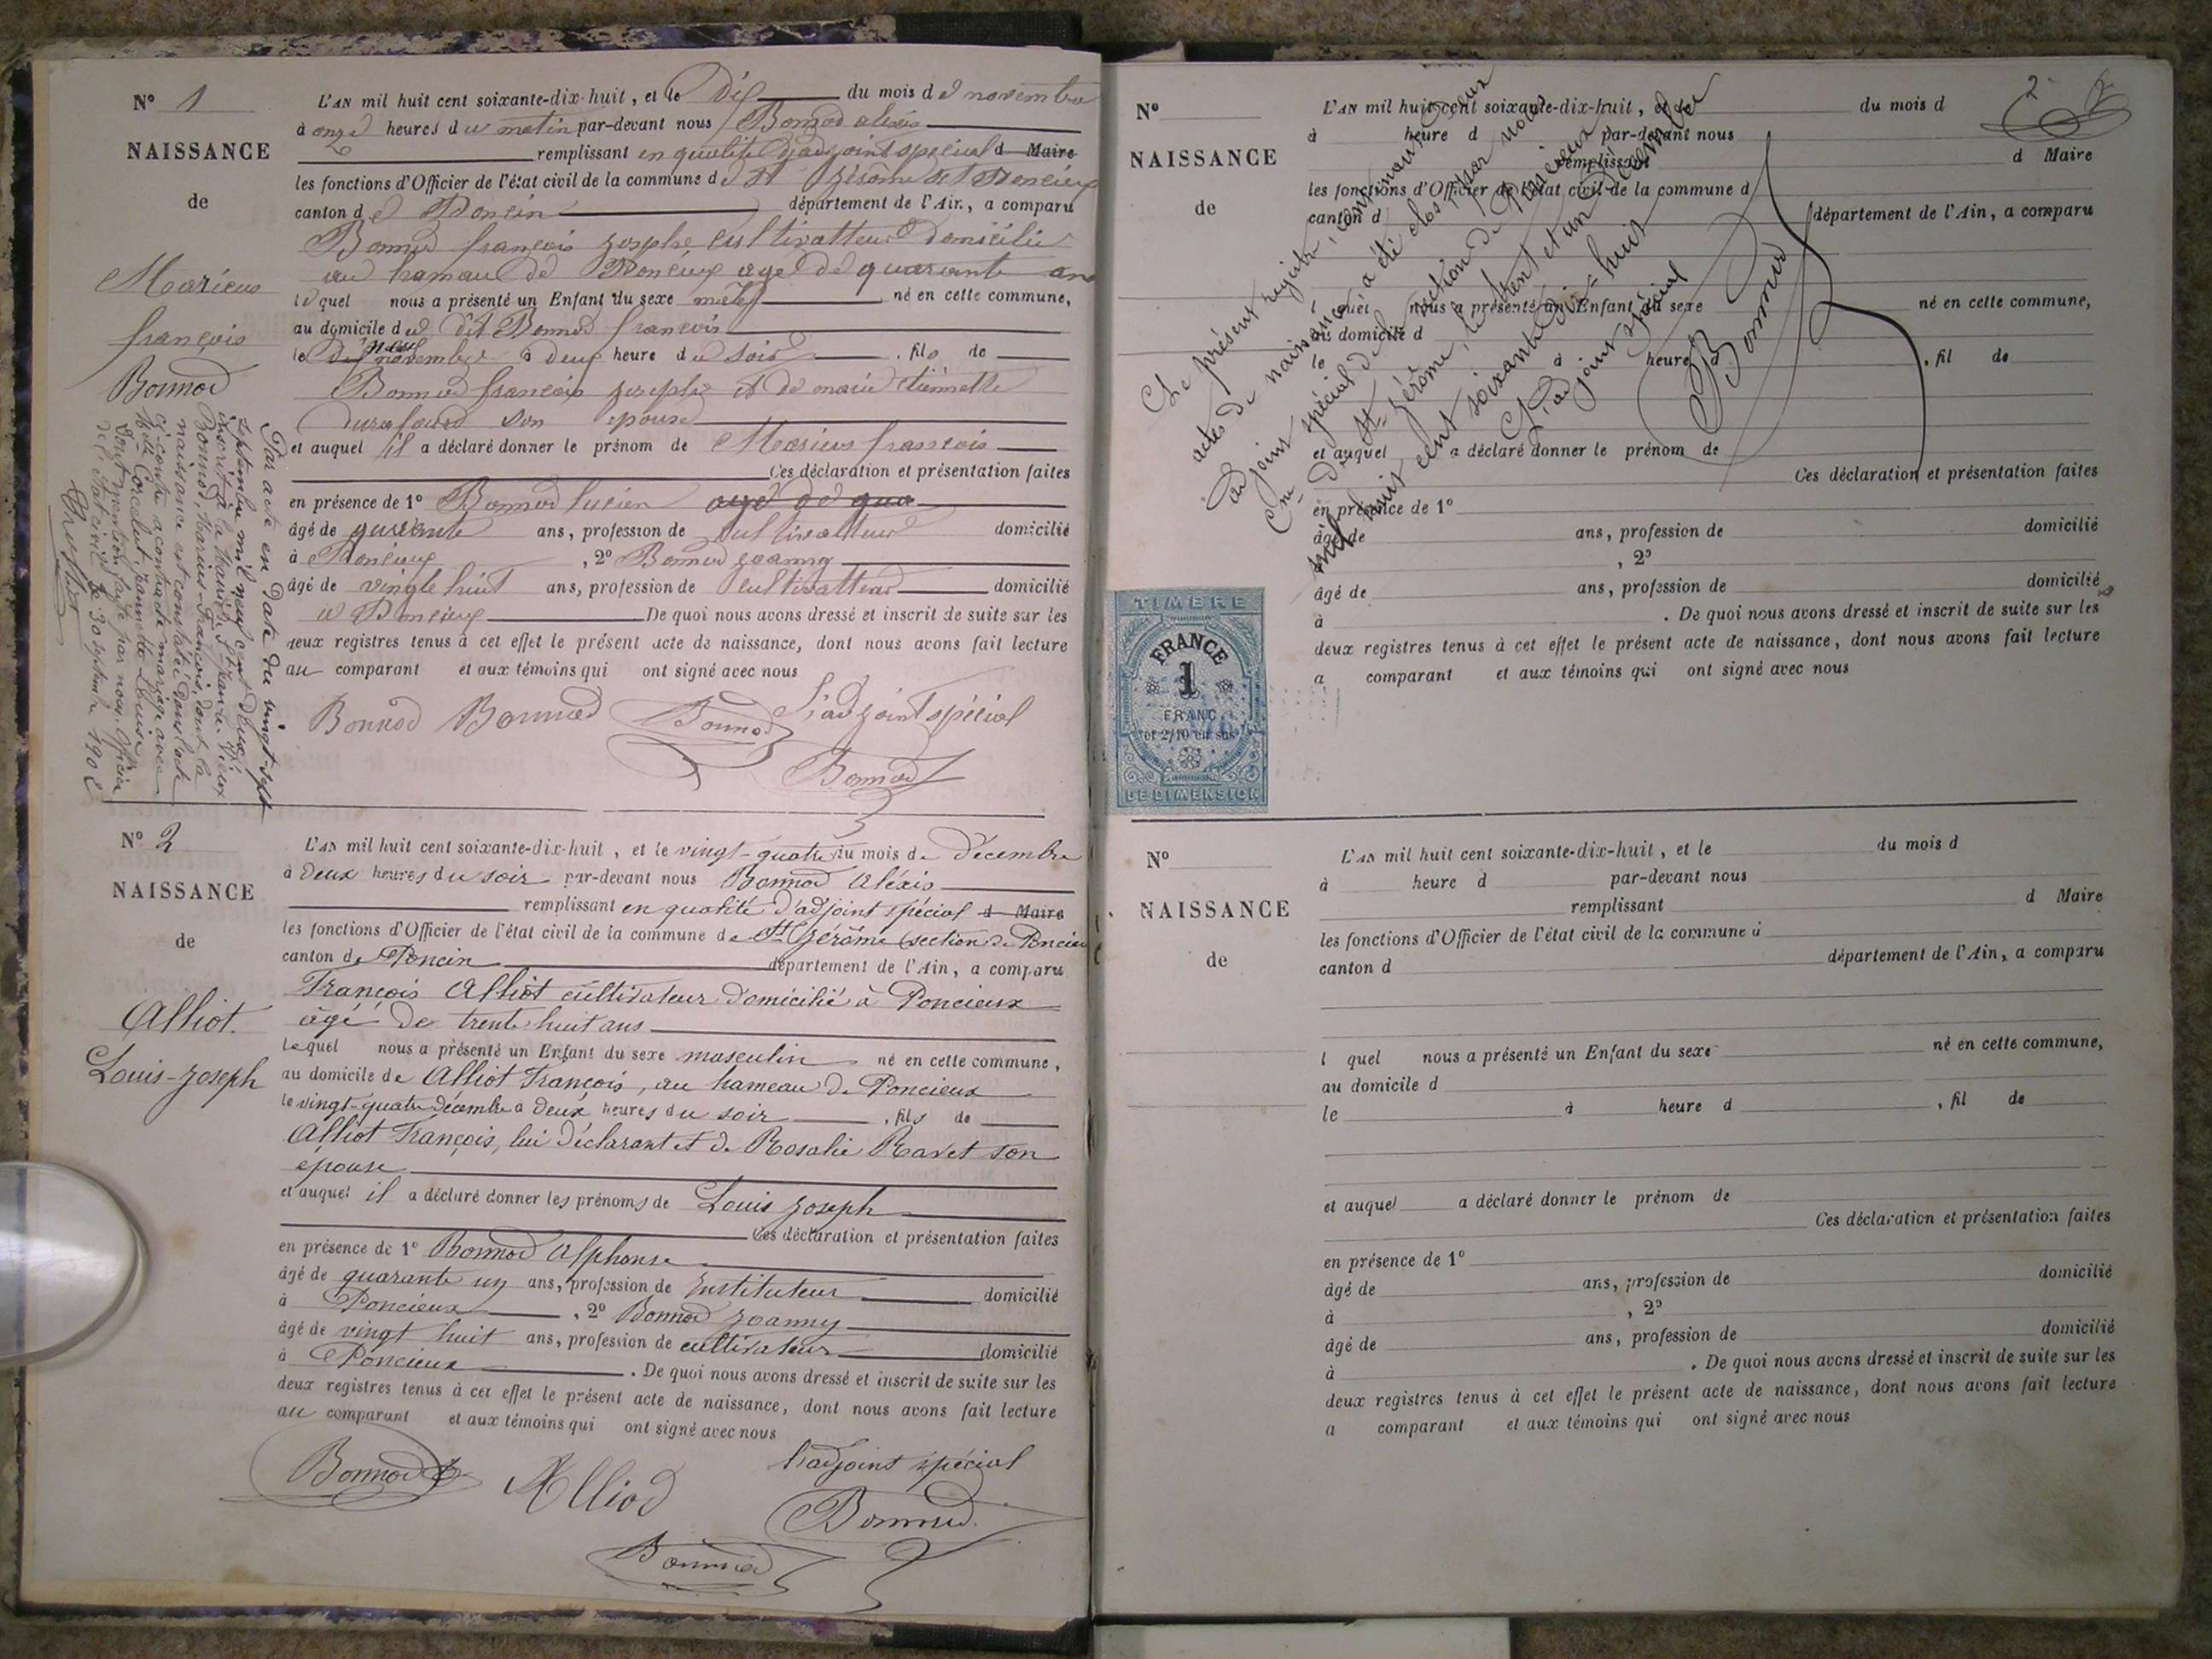 N° 1
NAISSANCE
de
Marieus
françois
Bonnod
L'AN mil huit cent soixante-dix-huit, et le Dix du mois de novembre
à onze heures du matin par-devant nous Bonnod alexis
remplissant en qualité d'adjoint spécial d Maire
les fonctions d'Officier de l'état civil de la commune de St Jérome
canton de Poncin département de l'Ain, a comparu
Bonnod françois josephe cultivatteur domicilié
au hamau de Poncieux agé de quarante ans
le quel nous a présenté un Enfant du sexe né en cette commune,
au domicile du dit Bonnod françois
le novembre à deux heure du soir, fils de
Bonnod françois josephe et de marie étiennette
son epouse
et auquel il a déclaré donner le prénom de Marius françois
Ces déclaration et présentation faites
en présence de 1° Bonnod lucien agé de qua
âgé de quarante ans, profession de cultivatteur domicilié
à Poncieux, 2° Bonnod joanny
âgé de vingt huit ans, profession de cultivatteur domicilié
a Poncieux De quoi nous avons dressé et inscrit de suite sur les
deux registres tenus à cet effet le présent acte de naissance, dont nous avons fait lecture
au comparant et aux témoins qui ont signé avec nous
Bonnod Bonnod Bonnod L'adjoint spécial
Bonnod
Par acte en date du vingt-sept
septembre mil neuf cent deux,
inscrit à la Mairie de
Bonnod, Marius-François, dont la
naissance est constatée dans l'acte
ci-contre a contracté mariage avec
Melle Corcelut, Jeannette-Louise
Dont mention faite par nous, officier
de l'état civil le 30 septembre 1902
N° 2
NAISSANCE
de
Alliot.
Louis-Joseph
L'AN mil huit cent soixante-dix-huit, et le vingt-quatre du mois de Décembre
à Deux heures du soir par-devant nous Bonnod Aléxis
remplissant en qualité d'adjoint spécial d Maire
les fonctions d'Officier de l'état civil de la commune de St Jérôme (section de Poncieux
canton de Poncin département de l'Ain, a comparu
François Alliot cultivateur domicilié à Poncieux
âgé de trente huit ans
lequel nous a présenté un Enfant du sexe masculin né en cette commune,
au domicile de Alliot François, au hameau de Poncieux
le vingt-quatre décembre à Deux heures du soir, fils de
Alliot François, lui déclarant et de Rosalie Ravet son
épouse
et auquel il a déclaré donner les prénoms de Louis Joseph
Ces déclaration et présentation faites
en présence de 1° Bonnod Alphonse
âgé de quarante un ans, profession de Instituteur domicilié
à Poncieux, 2° Bonnod Joanny
âgé de vingt huit ans, profession de cultivateur domicilié
à Poncieux. De quoi nous avons dressé et inscrit de suite sur les
deux registres tenus à cet effet le présent acte de naissance, dont nous avons fait lecture
au comparant et aux témoins qui ont signé avec nous
Bonnod Alliod l'adjoint spécial
Bonnod
Bonnod
2
N°
NAISSANCE
de
L'AN mil huit cent soixante-dix-huit, et le du mois d
à heure d par-devant nous
remplissant d Maire
les fonctions d'Officier de l'état civil de la commune d
canton d département de l'Ain, a comparu
l quel nous a présenté un Enfant du sexe né en cette commune,
au domicile d
le à heure d, fil de
et auquel a déclaré donner le prénom de
Ces déclaration et présentation faites
en présence de 1°
âgé de ans, profession de domicilié
, 2°
âgé de ans, profession de domicilié
à. De quoi nous avons dressé et inscrit de suite sur les
deux registres tenus à cet effet le présent acte de naissance, dont nous avons fait lecture
a comparant et aux témoins qui ont signé avec nous
Le présent registre, contenant deux
actes de naissance a été clos par nous
adjoint spécial de la section de Poncieux
Cne de St Jérôme, le trent et un Décembre
mil huit cent soixante dix-huit
L'adjoint spécial
Bonnod
TIMBRE
FRANCE
1
FRANC
et 2/10 en sus
DE DIMENSION
N°
NAISSANCE
de
L'AN mil huit cent soixante-dix-huit, et le du mois d
à heure d par-devant nous
remplissant d Maire
les fonctions d'Officier de l'état civil de la commune d
canton d département de l'Ain, a comparu
l quel nous a présenté un Enfant du sexe né en cette commune,
au domicile d
le à heure d, fil de
et auquel a déclaré donner le prénom de
Ces déclaration et présentation faites
en présence de 1°
âgé de ans, profession de domicilié
à, 2°
âgé de ans, profession de domicilié
à. De quoi nous avons dressé et inscrit de suite sur les
deux registres tenus à cet effet le présent acte de naissance, dont nous avons fait lecture
a comparant et aux témoins qui ont signé avec nous